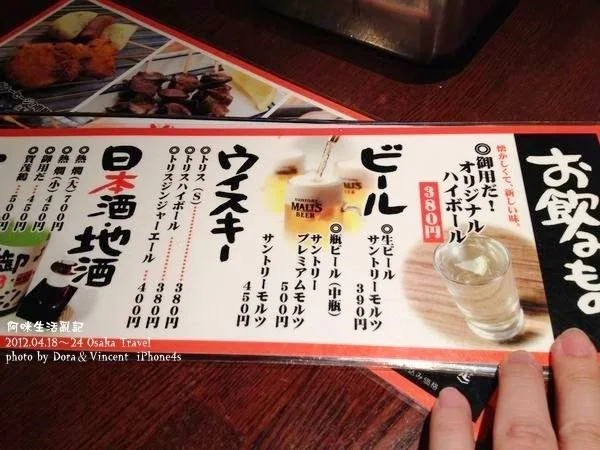 お飲みもの
懐かしくて、新しい味。
◎御用だ！
オリジナル
ハイボール
380円
ビール
◎生ビール
サントリーモルツ
390円
◎瓶ビール（中瓶）
サントリー
プレミアムモルツ
500円
サントリーモルツ
450円
SUNTORY
MALT'S
BEER
ウィスキー
◎トリス（S）………380円
◎トリスハイボール…380円
◎トリスジンジャーエール…400円
日本酒地酒
◎熱燗（大）700円
◎熱燗（小）450円
◎御用だ…500円
◎賀茂鶴…550円
御
込み価格
阿咪生活亂記
2012.04.18~24 Osaka Travel
photo by Dora & Vincent iPhone4s